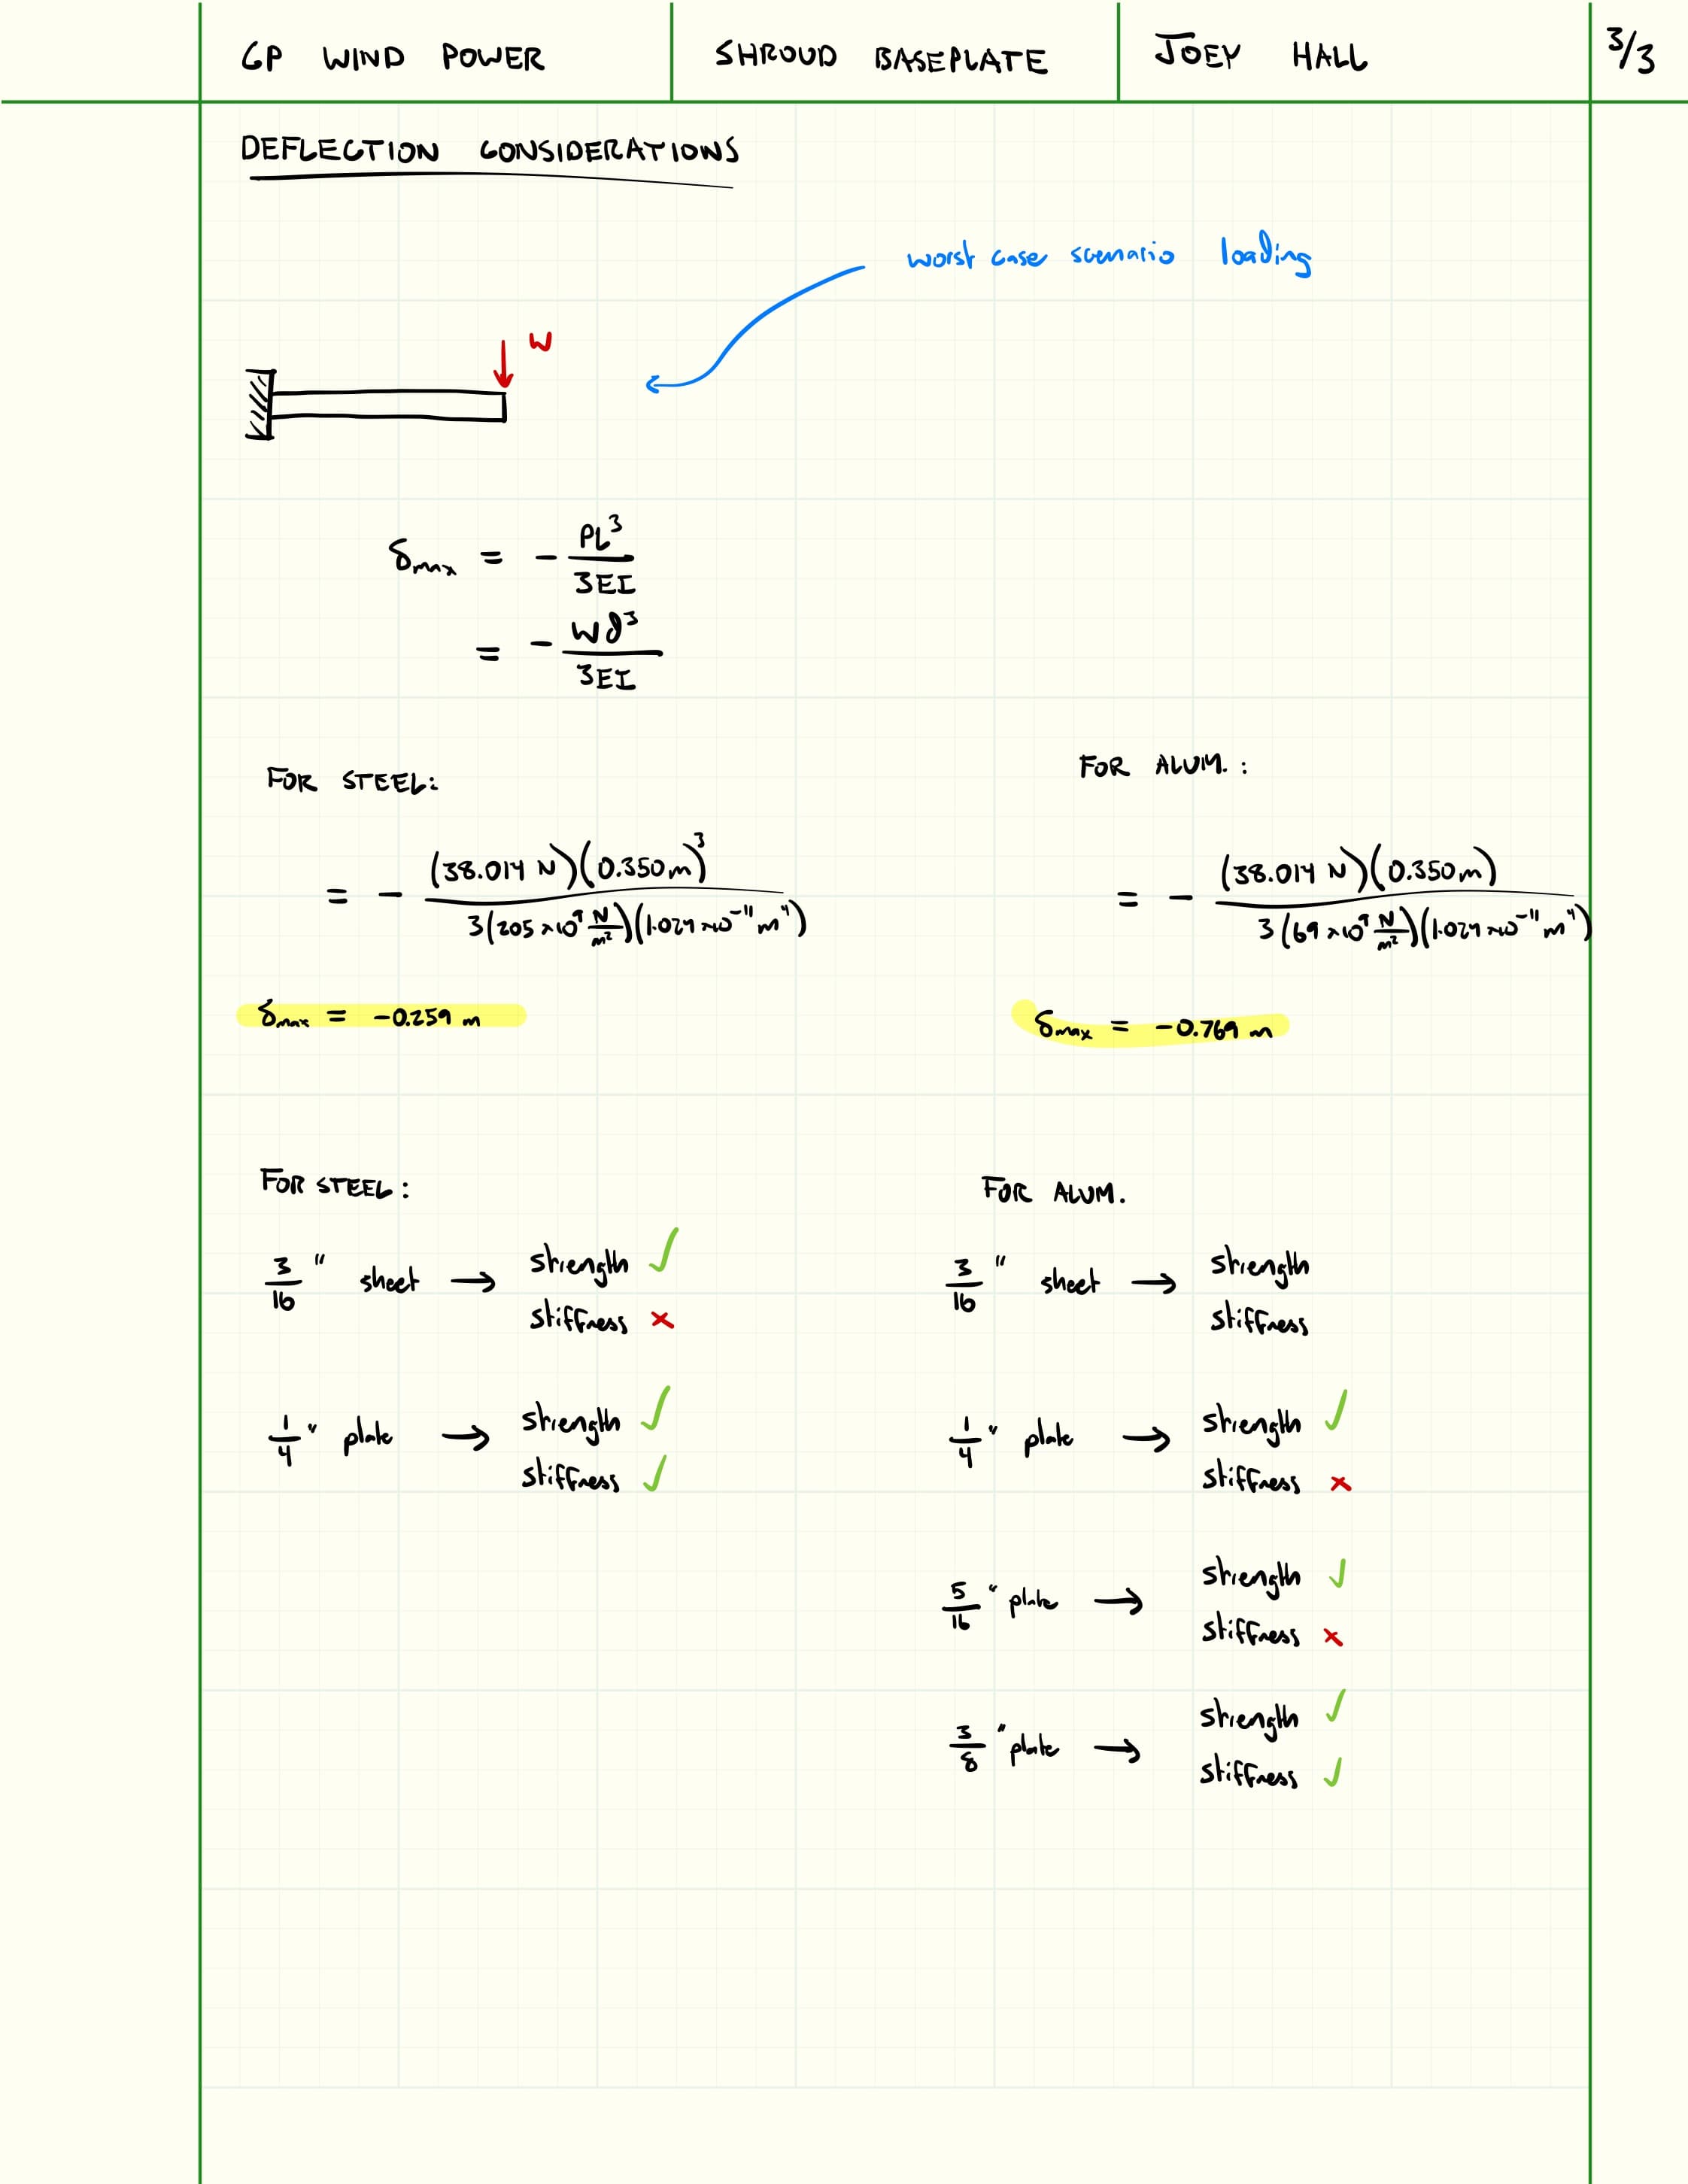 GP WIND POWER SHROUD BASEPLATE JOEY HALL 3/3
DEFLECTION CONSIDERATIONS
worst case scenario loading
W
δmax = - PL³/3EI
= - Wd³/3EI
FOR STEEL:
= - (38.014 N)(0.350 m)³ / 3(205 x10⁹ N/m²)(1.024 x10⁻¹¹ m⁴)
δmax = -0.259 m
FOR ALUM.:
= - (38.014 N)(0.350 m) / 3(69 x10⁹ N/m²)(1.024 x10⁻¹¹ m⁴)
δmax = -0.769 m
FOR STEEL:
3/16" sheet → strength ✓
stiffness ×
1/4" plate → strength ✓
stiffness ✓
FOR ALUM.
3/16" sheet → strength
stiffness
1/4" plate → strength ✓
stiffness ×
5/16" plate → strength ✓
stiffness ×
3/8" plate → strength ✓
stiffness ✓